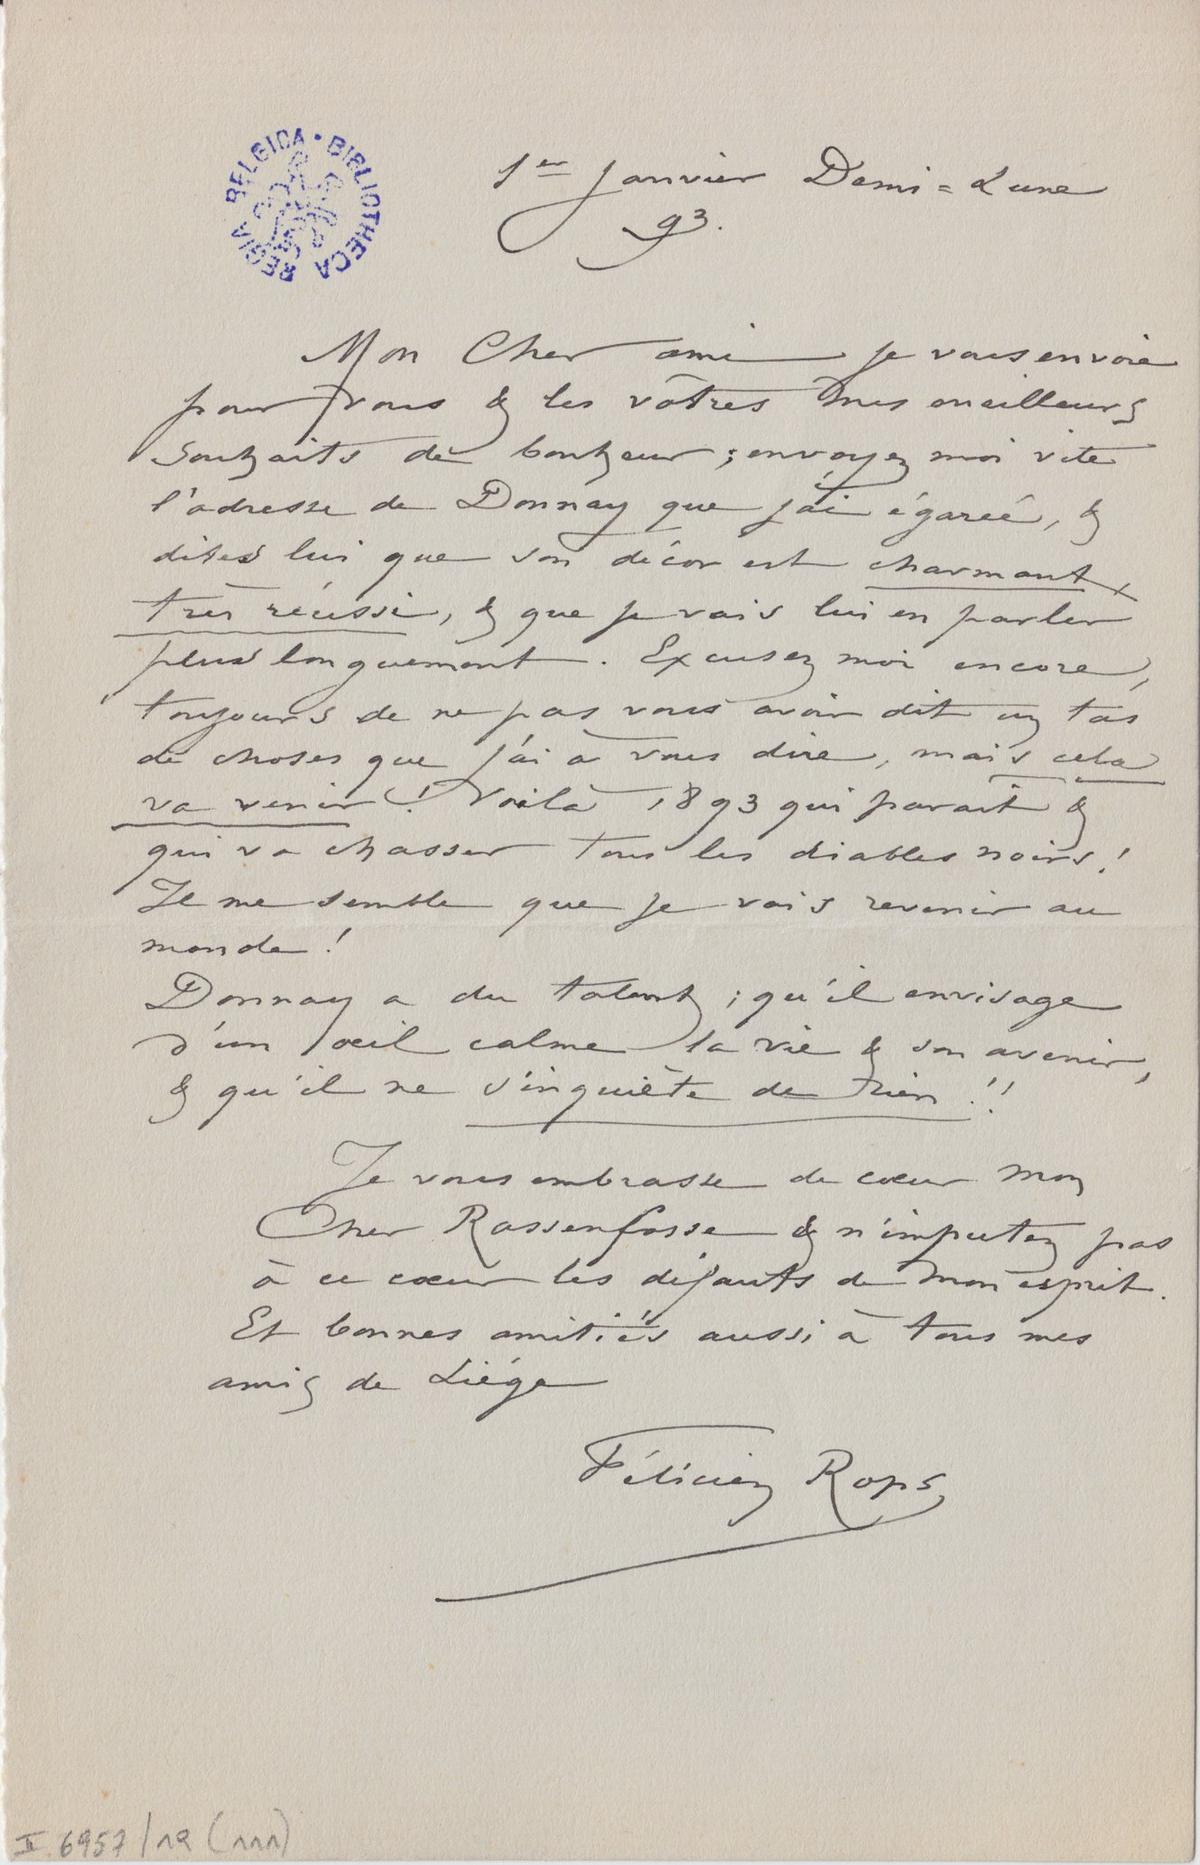 REGIA BELGICA • BIBLIOTHECA
1er Janvier Demi=Lune
93.
Mon Cher ami je vous envoie
pour vous & les vôtres mes meilleurs
souhaits de bonheur ; envoyez moi vite
l'adresse de Donnay que j'ai égareé, &
dites lui que son décor est charmant,
très réussi, & que je vais lui en parler
plus longuement. Excusez moi encore,
toujours de ne pas vous avoir dit un tas
de choses que j'ai à vous dire, mais cela
va venir ! Voilà 1893 qui parait &
qui va chasser tous les diables noirs !
Il me semble que je vais revenir au
monde !
Donnay a du talent ; qu'il envisage
d'un œil calme la vie & son avenir,
& qu'il ne s'inquiète de rien !!
Je vous embrasse de cœur mon
Cher Rassenfosse & n'imputez pas
à ce cœur les défauts de mon esprit.
Et bonnes amitiés aussi à tous mes
amis de Liége
Félicien Rops
II 6957/19 (111)